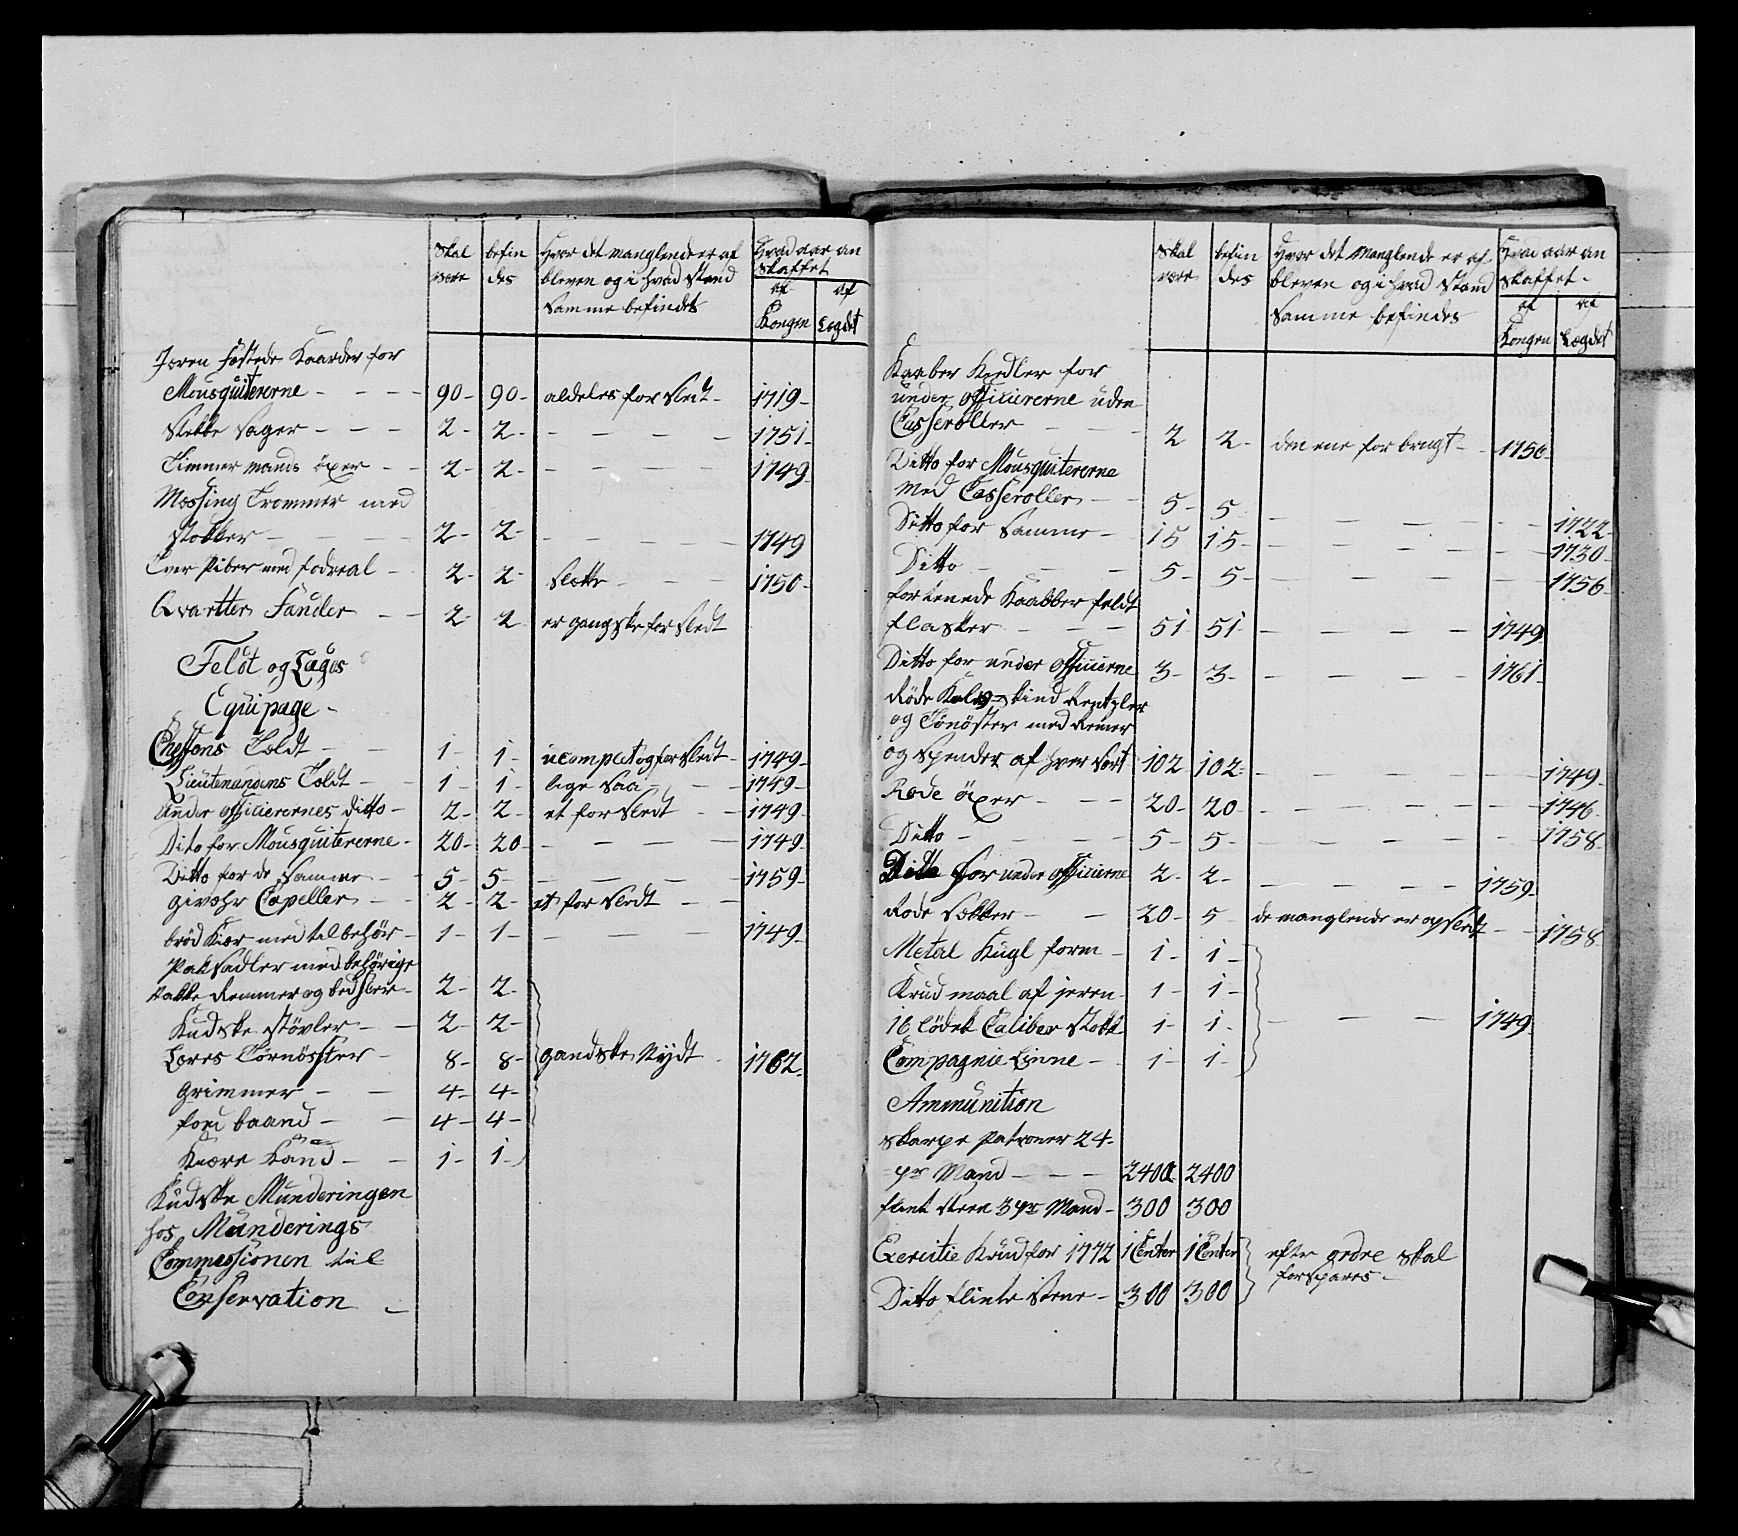 Skal være | befin des | Hvor det manglende er af bleven og i hvad Stand Samme befindes | Hvad aar an skaffet | af Kongen | af Lægdet
Jeren fæstede Kaarder for
Mousquitererne – – – 90– 90– aldeles for Sledt– 1719–
Stekke Sager – – – 2– 2– – – – – 1751–
Timmer mands öxer – – 2– 2– – – – 1749–
Messing Trommer med
Stokker – – – 2– 2– – – – – 1749
Tver Piber med foderal – 2– 2– Slette – – – 1750–
Qvartter Fander – – 2– 2 er gangske for Sledt
Feldt og Lages
Equipage –
Cheffens Toldt – – 1– 1– icomplet og for Sledt– 1749–
Lieutenandens Toldt – – 1– 1– lige Saa – – 1749–
Under officerernes ditto – 2– 2– et for Sledt – – 1749–
Dito for Mousquitererne– 20– 20– – – – – 1749–
Ditto for de Samme – 5– 5– – – – – 1759–
givehr Capeller – – 2– 2– et for Sledt – –
brød Kær med tilbehör – 1– 1– – – – 1749–
Pak Sadler med behörige
Pakke Remmer og bedsler – 2– 2–
Kudske Støvler – – 2– 2–
Læres Tørnösster – 8– 8– gandske Nydt – 1762–
Grimmer – – 4– 4–
four baand – – 4– 4–
Kiære Land – – 1– 1–
Kudske Munderingen
hos Munderings
Commissionen til
Conservation –
Skal være | befin des | Hvor det Manglende er af bleven og i hvad Stand Samme befindes | Hvad aar an skaffet– | af Kongen | af Lægdet
Kaaber Kiedler for
under officererne uden
Casseroller – – 2 2– den ene for brugt – – 1750–
Ditto for Mousquitererne
med Casseroller – – 5– 5– – – – – – 1722–
Ditto for Samme – 15 15– – – – – – 1730–
Ditto – – – 5– 5– – – – – – 1756–
fortenede Kaabber feldt
flasker – – – 51 51– – – – – 1749
Ditto for under officierne 3– 3– – – – – 1761–
Røde Kalv Skind Rentzler
og Tönöster med Remer
og Spender af hver Sort 102 102– – – – – – 1749–
Rode öxer – – – 20– 20– – – – – – 1746–
Ditto – – – 5– 5– – – – – – 1758–
Ditto for under officierne 2– 2– – – – – 1759–
Rode Sekker – – 20– 5 de manglende er op Sledt – – 1758–
Metal Kugl form – 1– 1–
Krud maal af jeren– 1– 1–
16 lödet Caliber Stokk 1– 1– – – – 1749
Compagnie Linne – 1– 1–
Ammunition
Skarpe Patroner 24–
pr Mand – – – 2400 2400
flint Steen 3 pr Mand– 300 300
Exercitie Krud for 1772 1 Center 1 Center efter ordre Skal
forspares–
Ditto Flinte Stene – 300 300